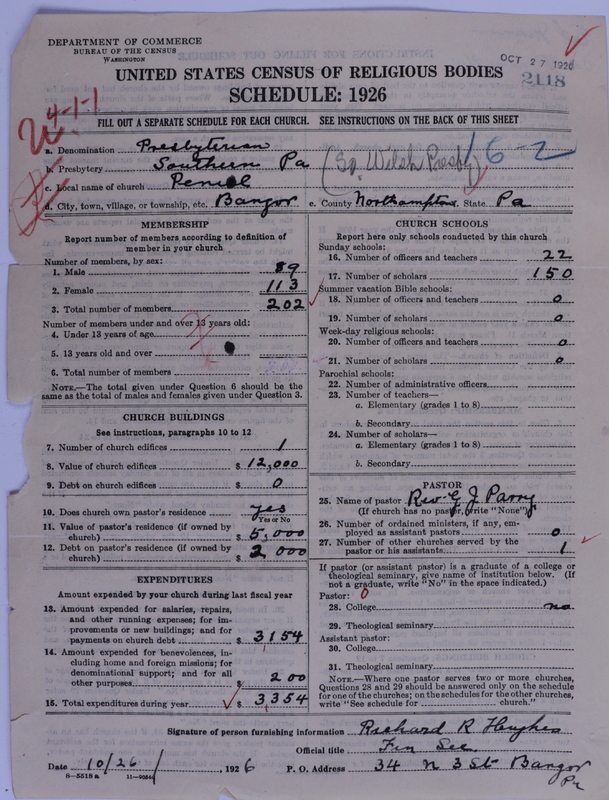 DEPARTMENT OF COMMERCE
BUREAU OF THE CENSUS
WASHINGTON
OCT 27 1926
2118
UNITED STATES CENSUS OF RELIGIOUS BODIES
SCHEDULE: 1926
4-1-1
FILL OUT A SEPARATE SCHEDULE FOR EACH CHURCH. SEE INSTRUCTIONS ON THE BACK OF THIS SHEET
a. Denomination Presbyterian
16-2
b. Presbytery Southern Pa (So. Welsh Presby)
c. Local name of church Peniel
d. City, town, village, or township, etc. Bangor e. County Northampton State Pa
MEMBERSHIP
Report number of members according to definition of
member in your church
Number of members, by sex:
1. Male 89
2. Female 113
3. Total number of members 202
Number of members under and over 13 years old:
4. Under 13 years of age
5. 13 years old and over
6. Total number of members
NOTE.—The total given under Question 6 should be
same as the total of males and females given under Question 3.
CHURCH BUILDINGS
See instructions, paragraphs 10 to 12
7. Number of church edifices 1
8. Value of church edifices $ 12,000
9. Debt on church edifices $ 0
10. Does church own pastor's residence yes
Yes or No
11. Value of pastor's residence (if owned by
church) $ 5,000
12. Debt on pastor's residence (if owned by
church) $ 2,000
EXPENDITURES
Amount expended by your church during last fiscal year
13. Amount expended for salaries, repairs,
and other running expenses; for im-
provements or new buildings; and for
payments on church debt $ 3154
14. Amount expended for benevolences, in-
cluding home and foreign missions; for
denominational support; and for all
other purposes $ 200
15. Total expenditures during year $ 3354
CHURCH SCHOOLS
Report here only schools conducted by this church
Sunday schools:
16. Number of officers and teachers 22
17. Number of scholars 150
Summer vacation Bible schools:
18. Number of officers and teachers 0
19. Number of scholars 0
Week-day religious schools:
20. Number of officers and teachers 0
21. Number of scholars 0
Parochial schools:
22. Number of administrative officers
23. Number of teachers—
a. Elementary (grades 1 to 8)
b. Secondary
24. Number of scholars—
a. Elementary (grades 1 to 8)
b. Secondary
PASTOR
25. Name of pastor Rev. G J Parry
(If church has no pastor, write "None")
26. Number of ordained ministers, if any, em-
ployed as assistant pastors 0
27. Number of other churches served by the
pastor or his assistants 1
If pastor (or assistant pastor) is a graduate of a college or
theological seminary, give name of institution below. (If
not a graduate, write "No" in the space indicated.)
Pastor: 0
28. College no
29. Theological seminary
Assistant pastor:
30. College
31. Theological seminary
NOTE.—Where one pastor serves two or more churches,
Questions 28 and 29 should be answered only on the schedule
for one of the churches; on the schedules for the other churches,
write "See schedule for ........ church."
Signature of person furnishing information Richard R Hughes
Official title Fin Sec
Date 10/26/, 1926 P. O. Address 34 N 3 St Bangor
Pa